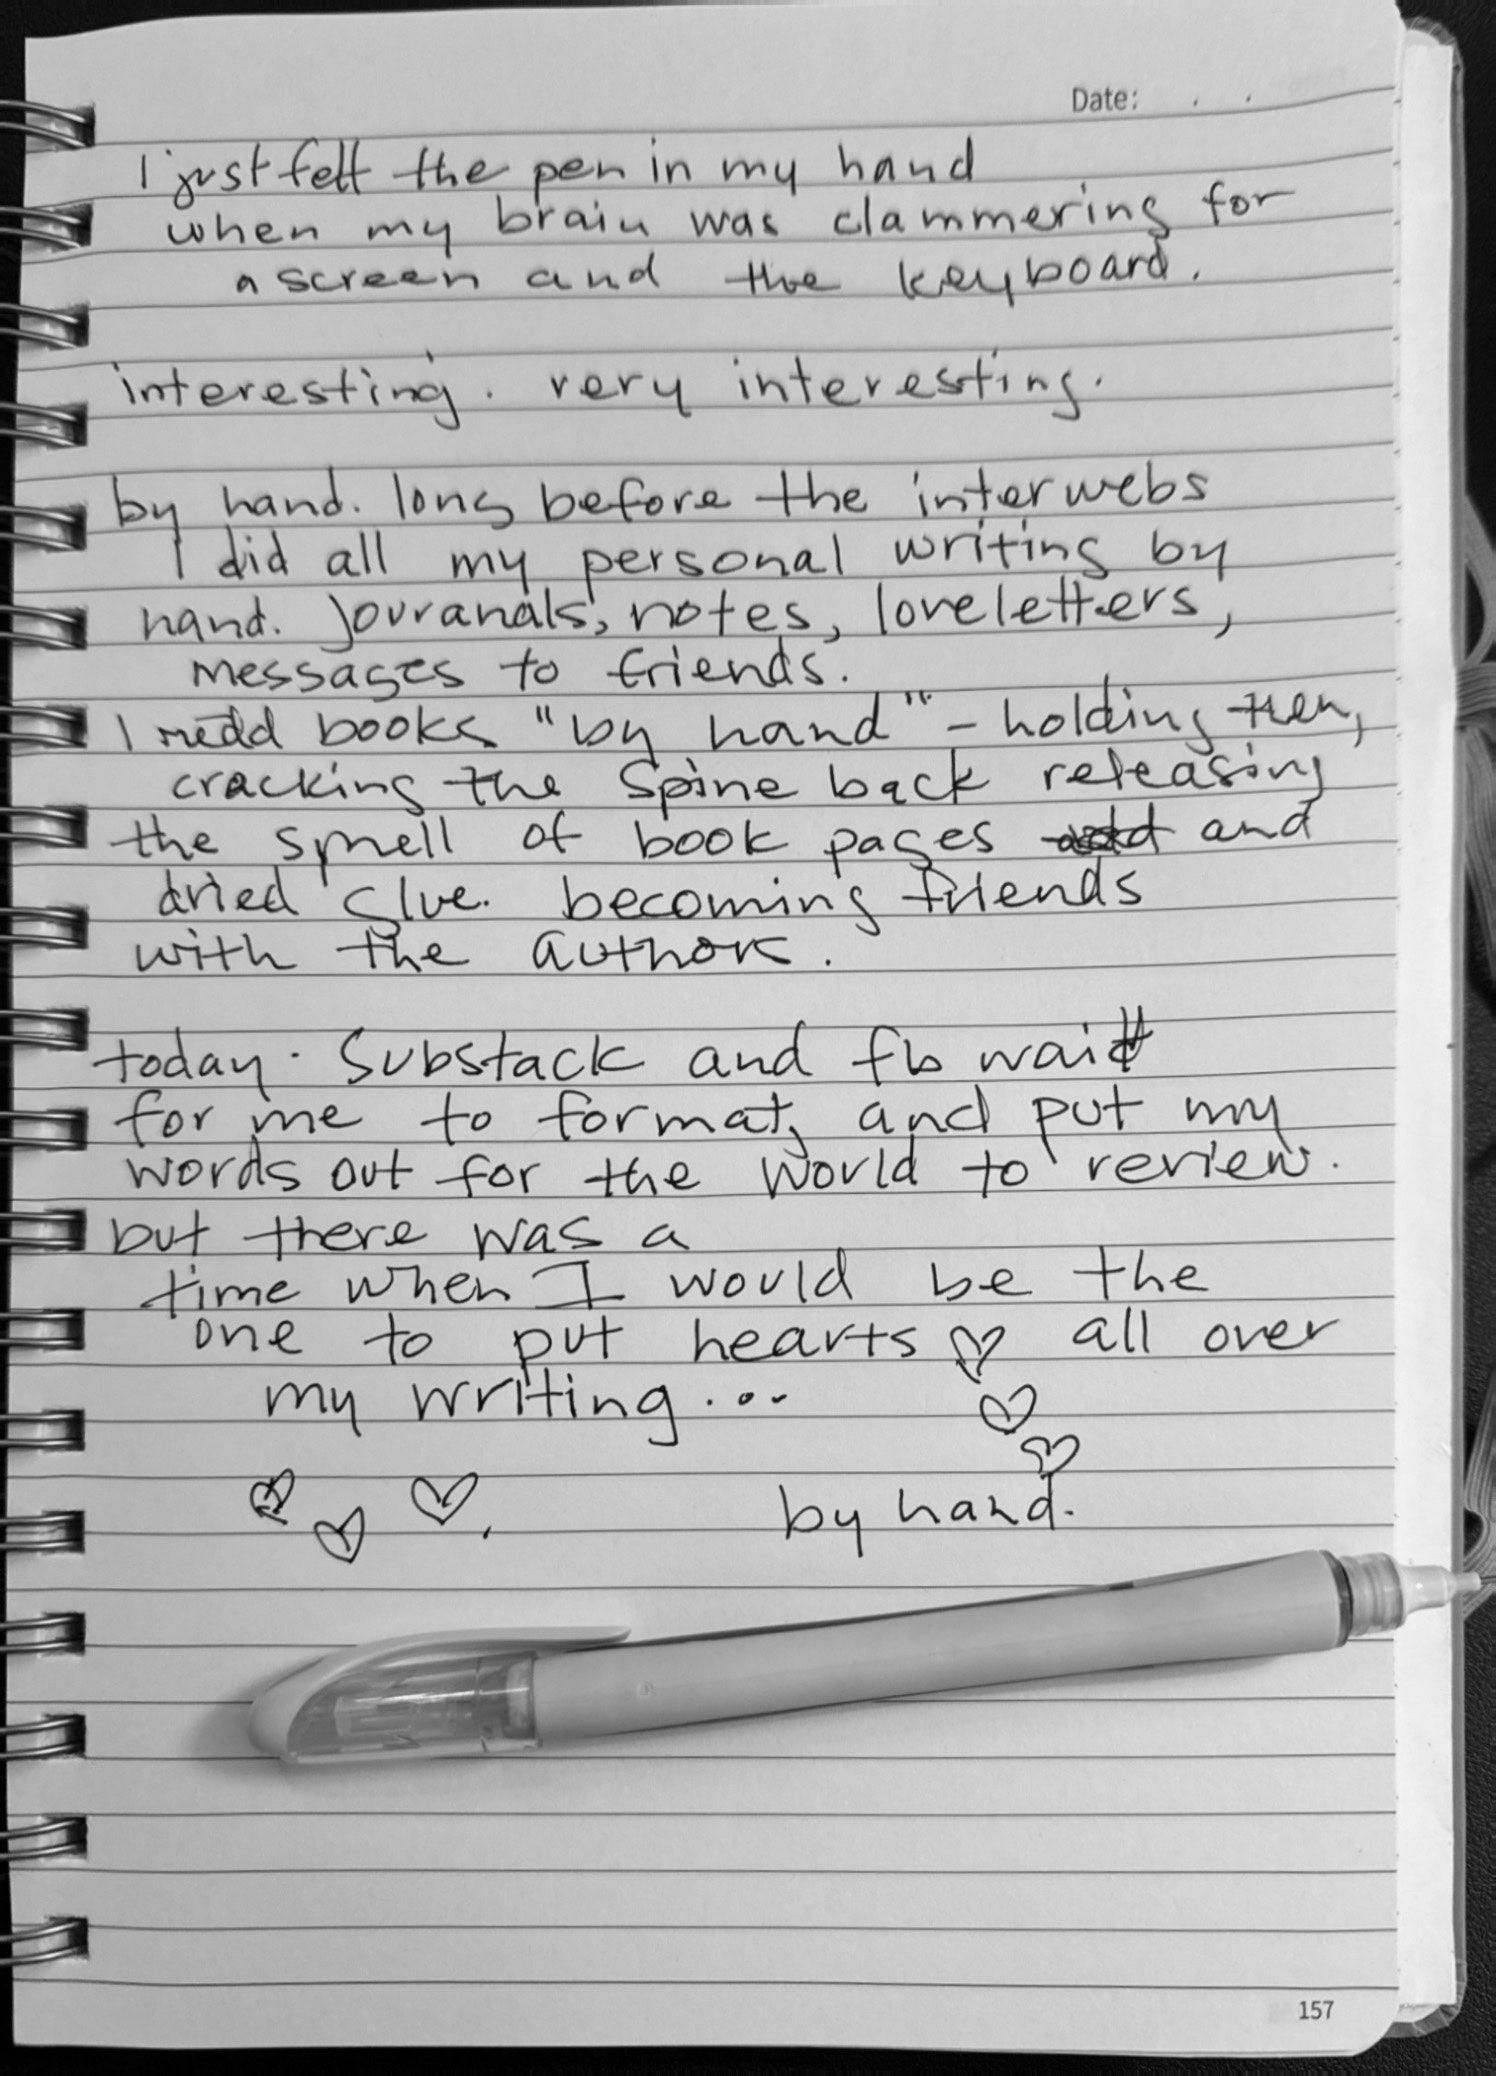 Date: . .
I just felt the pen in my hand
when my brain was clammering for
a screen and the keyboard.
interesting. very interesting.
by hand. long before the interwebs
I did all my personal writing by
hand. Jouranals, notes, loveletters,
messages to friends.
I redd books "by hand" - holding then,
cracking the spine back releasing
the smell of book pages and
dried glue. becoming friends
with the authors.
today. Substack and fb wait
for me to format, and put my
words out for the world to review.
but there was a
time when I would be the
one to put hearts ♡ all over
my writing....
by hand.
157